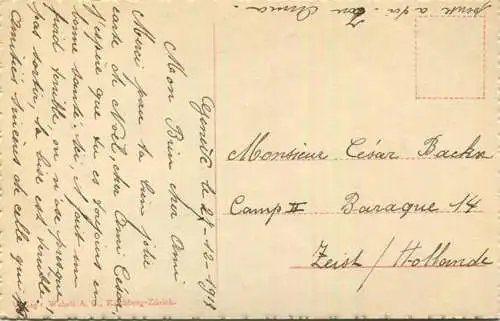 pense a toi. Ton Anna.
Genève le 27-12-1918
Mon Bien cher Ami
Merci pour ta bien jolie
carte de Noël, cher Ami César,
j'espère que tu es toujours en
bonne santé. Ici il fait un
froid terrible on n'ose presque
pas sortir, la bise est terrible!
Amitiés sincères de celle qui
Monsieur César Backx
Camp II Baraque 14
Zeist / Hollande
Wehrli A. G., Kilchberg-Zürich